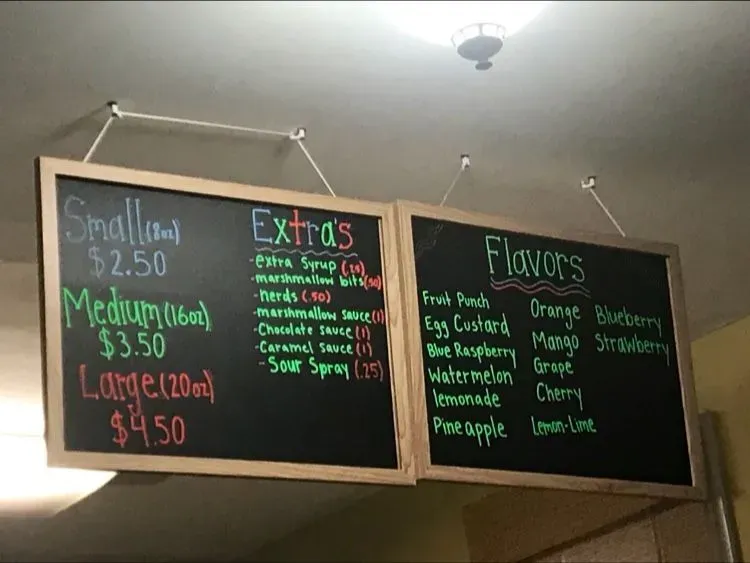 Small (8oz)
$2.50
Medium (16oz)
$3.50
Large (20oz)
$4.50
Extra's
-extra syrup (.25)
-marshmallow bits (.50)
-nerds (.50)
-marshmallow sauce (1)
-Chocolate sauce (1)
-Caramel sauce (1)
-Sour Spray (.25)
Flavors
Fruit Punch
Egg Custard
Blue Raspberry
Watermelon
lemonade
Pineapple
Orange
Mango
Grape
Cherry
Lemon-Lime
Blueberry
Strawberry